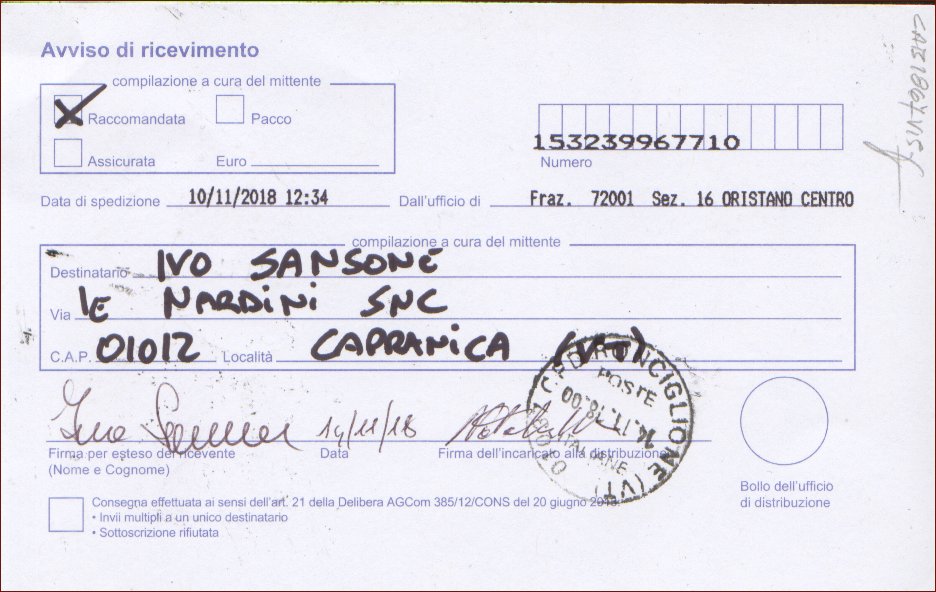 Avviso di ricevimento
compilazione a cura del mittente
Raccomandata Pacco
Assicurata Euro
153239967710
Numero
Data di spedizione 10/11/2018 12:34 Dall'ufficio di Fraz. 72001 Sez. 16 ORISTANO CENTRO
compilazione a cura del mittente
Destinatario IVO SANSONE
Via LE NARDINI SNC
C.A.P. 01012 Località CAPRANICA (VT)
14/11/18
Firma per esteso del ricevente Data Firma dell'incaricato alla distribuzione
(Nome e Cognome)
RONCIGLIONE (VT)
POSTE
14.11.18.00
ITALIANE
Bollo dell'ufficio
di distribuzione
Consegna effettuata ai sensi dell'art. 21 della Delibera AGCom 385/12/CONS del 20 giugno 2013:
• Invii multipli a un unico destinatario
• Sottoscrizione rifiutata